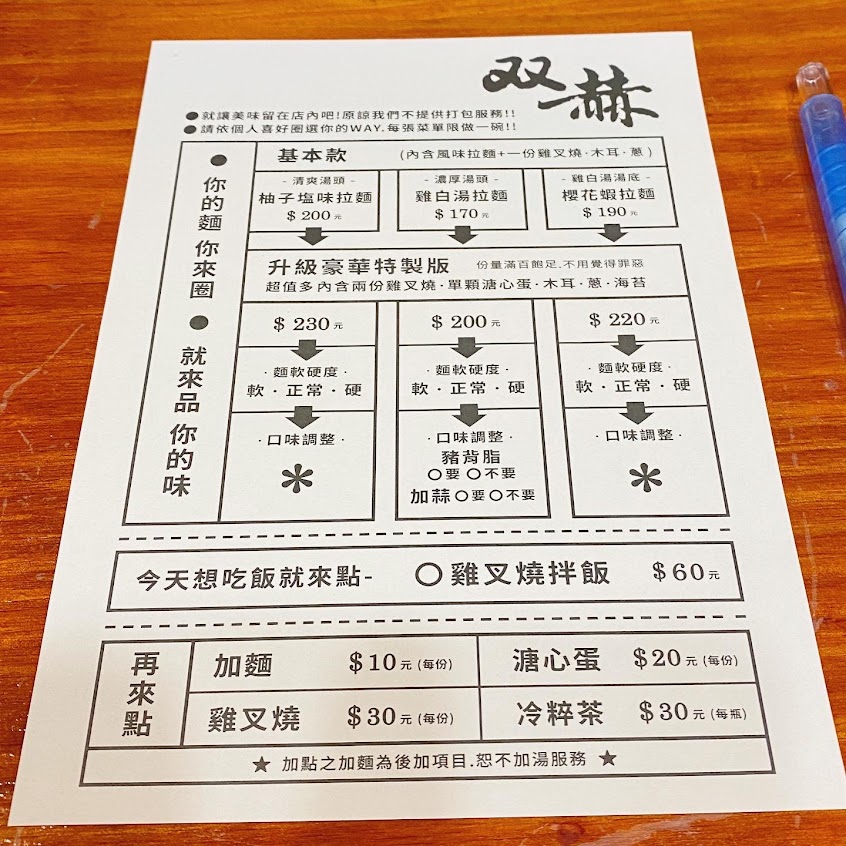 双一赫
●就讓美味留在店內吧!原諒我們不提供打包服務!!
●請依個人喜好圈選你的WAY.每張菜單限做一碗!!
● 你的麵 你來圈 ● 就來品 你的味
基本款 (內含風味拉麵+一份雞叉燒·木耳·蔥)
- 清爽湯頭 -
柚子塩味拉麵
$200元
- 濃厚湯頭 -
雞白湯拉麵
$170元
- 雞白湯湯底 -
櫻花蝦拉麵
$190元
升級豪華特製版 份量滿百飽足.不用覺得罪惡
超值多內含兩份雞叉燒·單顆溏心蛋·木耳·蔥·海苔
$230元
·麵軟硬度·
軟·正常·硬
·口味調整·
*
$200元
·麵軟硬度·
軟·正常·硬
·口味調整·
豬背脂
○要 ○不要
加蒜○要○不要
$220元
·麵軟硬度·
軟·正常·硬
·口味調整·
*
今天想吃飯就來點- ○雞叉燒拌飯 $60元
再來點
加麵 $10元(每份)
溏心蛋 $20元(每份)
雞叉燒 $30元(每份)
冷粹茶 $30元(每瓶)
★ 加點之加麵為後加項目.恕不加湯服務 ★